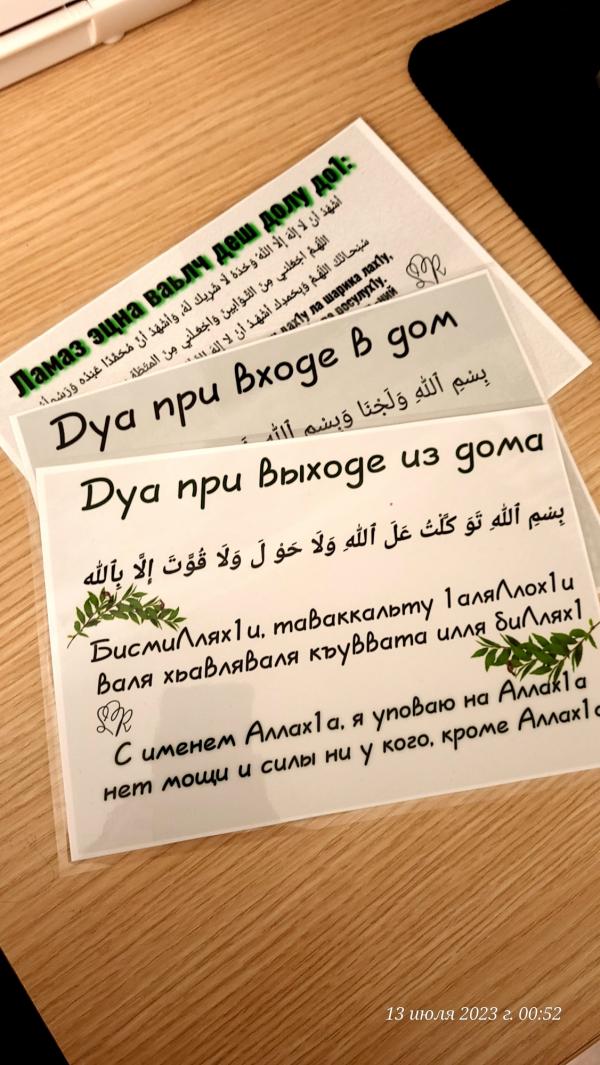 Ламаз эцна ваьлч деш долу до1:
أَشْهَدُ أَنْ لَا إِلَهَ إِلَّا اللهُ وَحْدَهُ لَا شَرِيكَ لَهُ وَأَشْهَدُ أَنَّ مُحَمَّدًا عَبْدُهُ وَرَسُولُهُ
اللَّهُمَّ اجْعَلْنِي مِنَ التَّوَّابِينَ وَاجْعَلْنِي مِنَ
سُبْحَانَكَ اللَّهُمَّ وَبِحَمْدِكَ أَشْهَدُ أَنْ لَا إِلَهَ
лах1у ла шарика лах1у,
росулух1у.
Дуа при входе в дом
بِسْمِ ٱللهِ وَلَجْنَا وَبِسْمِ ٱللهِ
Дуа при выходе из дома
بِسْمِ ٱللهِ تَوَ كَّلْتُ عَلَ ٱللهِ وَلَا حَوْ لَ وَلَا قُوَّتَ إِلَّا بِٱلله
БисмиЛлях1и, таваккальту 1аляЛлох1и
валя хьавляваля къуввата илля биЛлях1
С именем Аллах1а, я уповаю на Аллах1а
нет мощи и силы ни у кого, кроме Аллах1а
13 июля 2023 г. 00:52